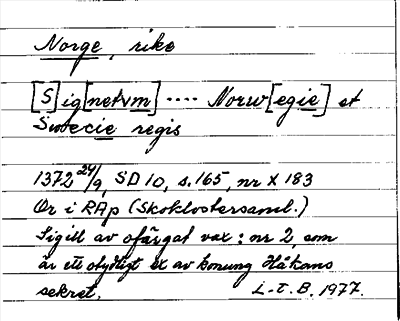 Norge, rike
[S]ig[netvm] .... Norw[egie] et
Swecie regis
1372 24/9, SD 10, s. 165, nr X 183
Or i RAp (Skoklostersaml.)
Sigill av ofärgat vax: nr 2, som
är ett otydligt ex av konung Håkans
sekret. L-t. B. 1977.